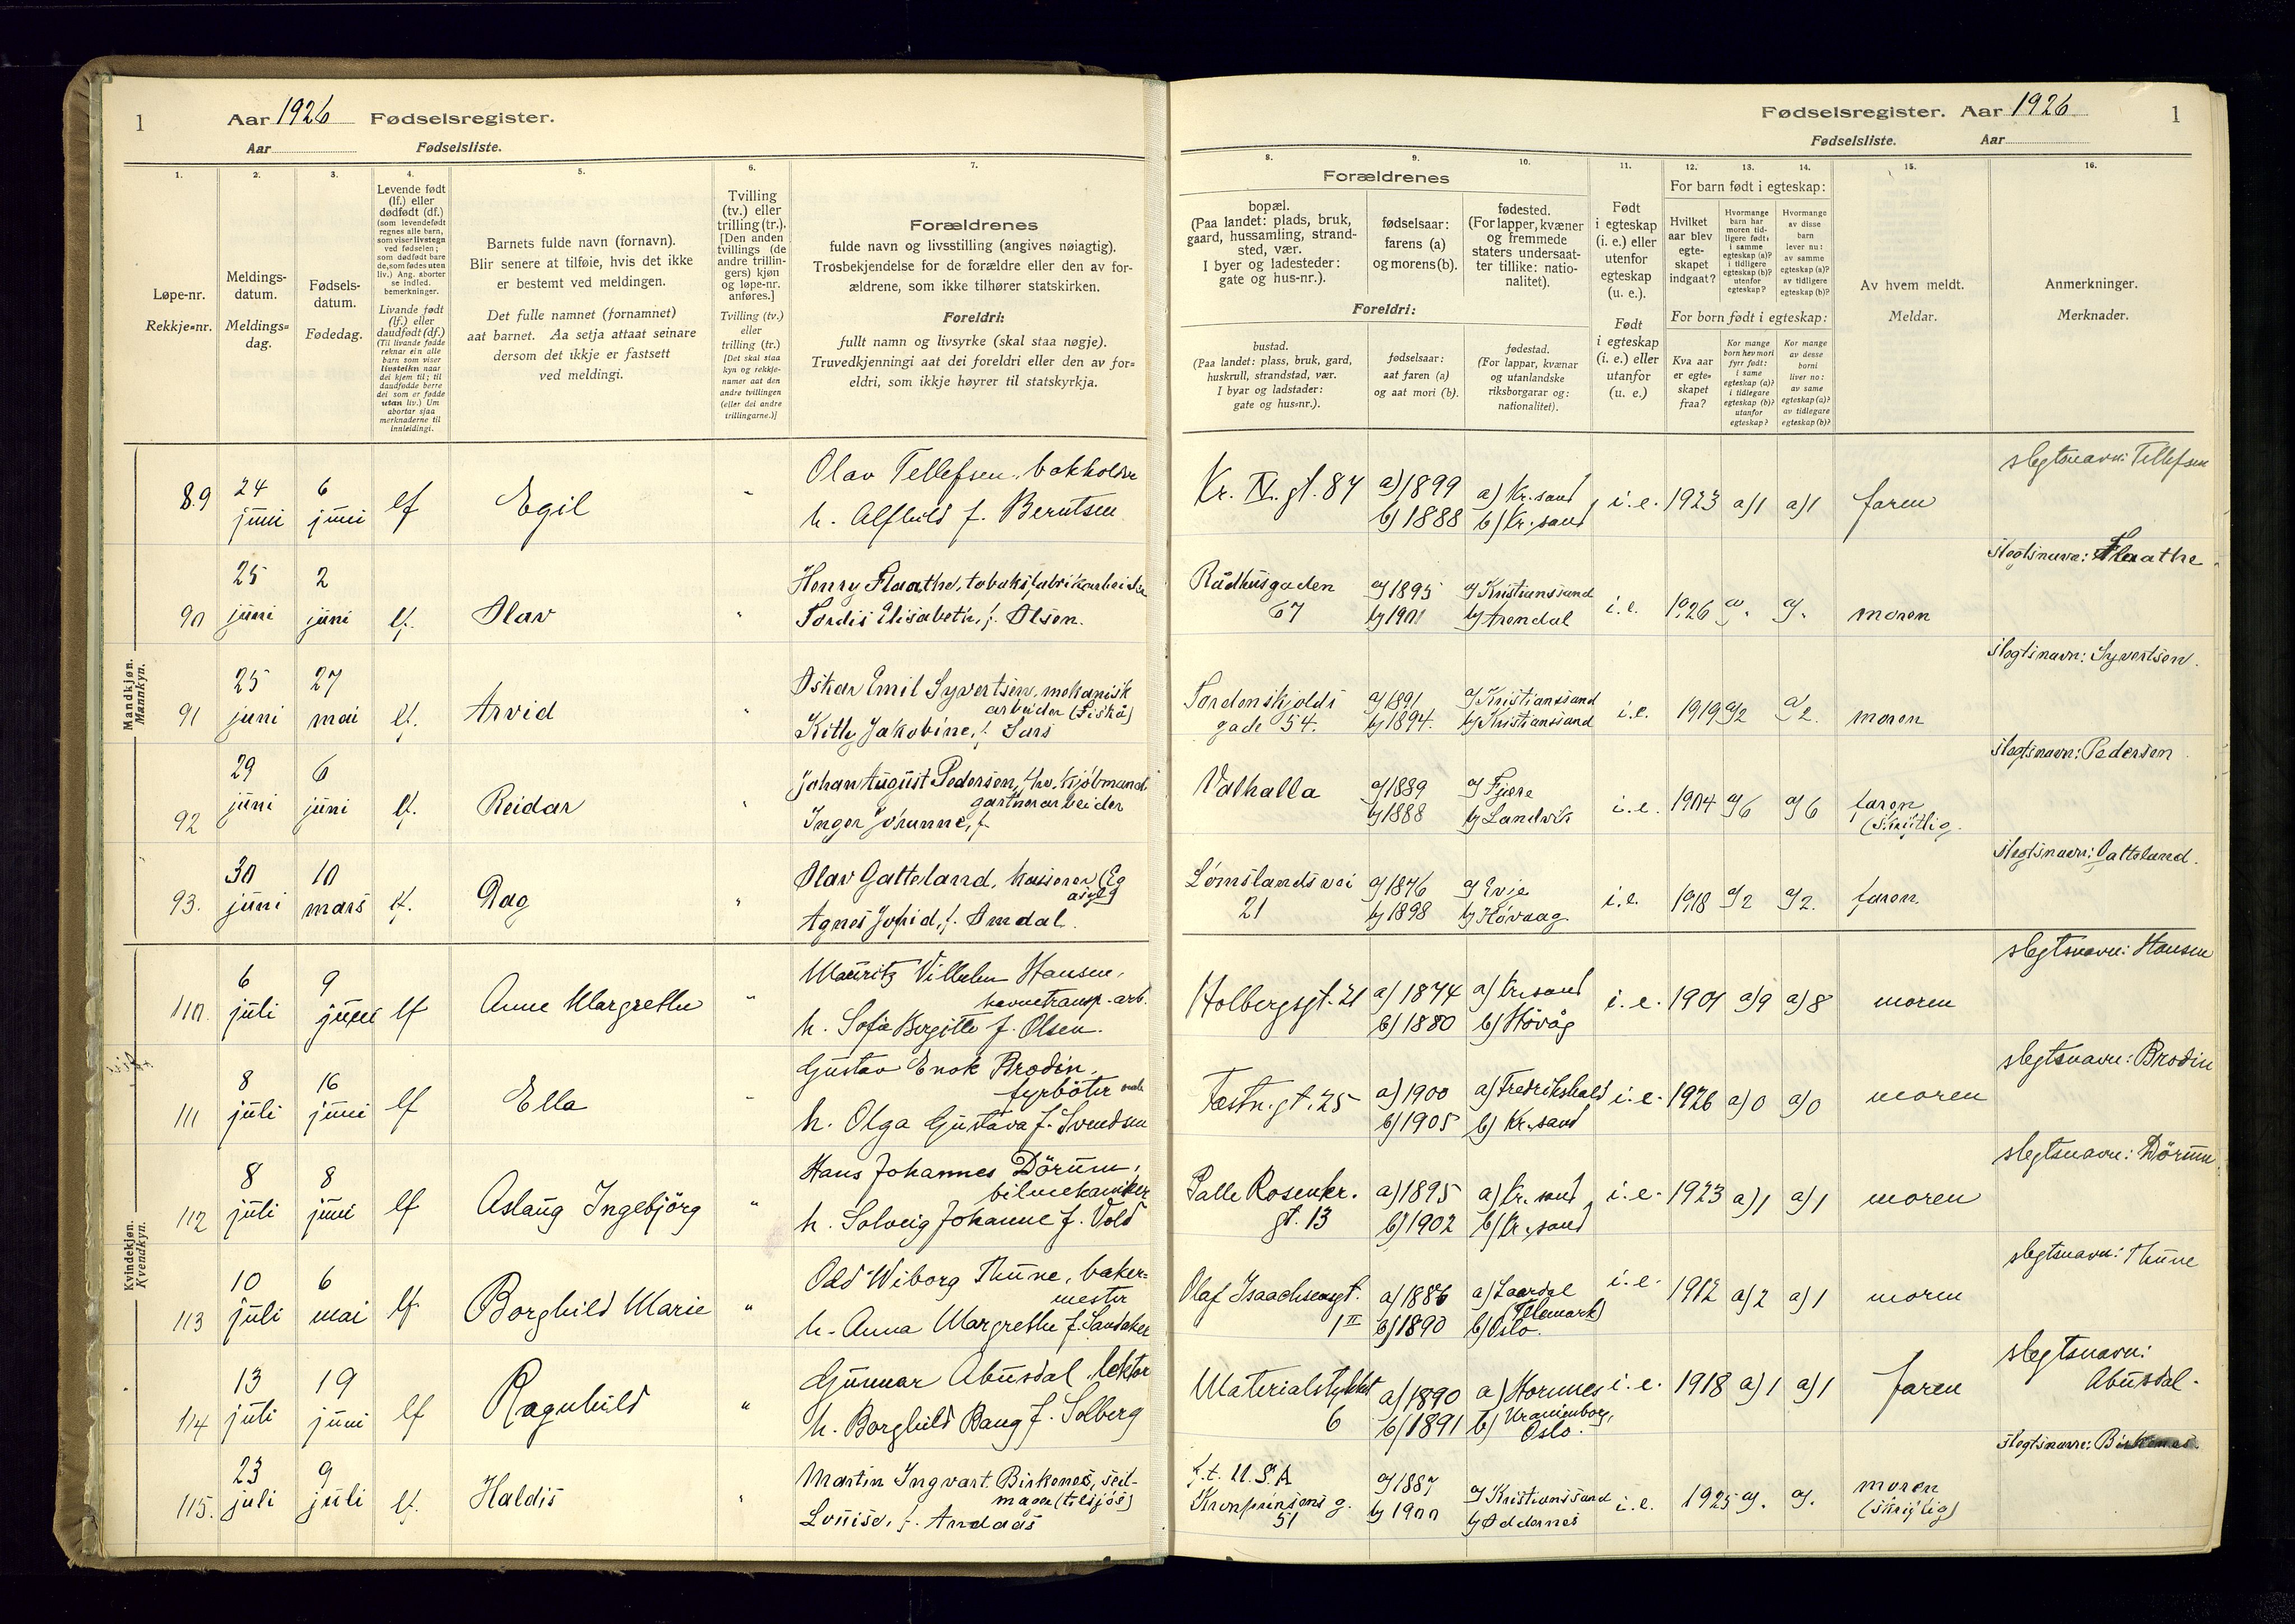 1
Aar 1926 Fødselsregister.
Aar Fødselsliste.
Fødselsregister. Aar 1926
1
Fødselsliste. Aar
1.
Løpe-nr.
Rekkje-nr.
2.
Meldings-
datum.
Meldings-
dag.
3.
Fødsels-
datum.
Fødedag.
4.
Levende født
(lf.) eller
dødfødt (df.)
(som levendefødt
regnes alle barn,
som viser livstegn
ved fødselen;
som dødfødt bare
de, som fødes uten
liv.) Ang. aborter
se indled.
bemerkninger.
Livande født
(lf.) eller
daudfødt (df.)
(Til livande fødde
reknar ein alle
barn som viser
livsteikn naar
dei kjem til; til
daudfødde berre
dei som er fødde
utan liv.) Um
abortar sjaa
merknaderne til
innleidingi.
5.
Barnets fulde navn (fornavn).
Blir senere at tilføie, hvis det ikke
er bestemt ved meldingen.
Det fulle namnet (fornamnet)
aat barnet. Aa setja attaat seinare
dersom det ikkje er fastsett
ved meldingi.
6.
Tvilling
(tv.) eller
trilling (tr.).
[Den anden
tvillings (de
andre trillin-
gers) kjøn
og løpe-nr.
anføres.]
Tvilling (tv.)
eller
trilling (tr.)
[Det skal staa
kyn og rekkje-
numer aat den
andre tvillingen
(eller dei andre
trillingarne.)]
7.
Forældrenes
fulde navn og livsstilling (angives nøiagtig).
Trosbekjendelse for de forældre eller den av for-
ældrene, som ikke tilhører statskirken.
Foreldri:
fullt namn og livsyrke (skal staa nøgje).
Truvedkjenningi aat dei foreldri eller den av for-
eldri, som ikkje høyrer til statskyrkja.
8.
Forældrenes
bopæl.
(Paa landet: plads, bruk,
gaard, hussamling, strand-
sted, vær.
I byer og ladesteder:
gate og hus-nr.).
Foreldri:
bustad.
(Paa landet: plass, bruk, gard,
huskrull, strandstad, vær.
I byar og ladstader:
gate og hus-nr.).
9.
fødselsaar:
farens (a)
og morens (b).
fødselsaar:
aat faren (a)
og aat mori (b).
10.
fødested.
(For lapper, kvæner
og fremmede
staters undersaat-
ter tillike: natio-
nalitet).
fødestad.
(For lappar, kvænar
og utanlandske
riksborgarar og:
nationalitet).
11.
Født
i egteskap
(i. e.) eller
utenfor
egteskap
(u. e.).
Født
i egteskap
(i. e.) eller
utanfor
(u. e.)
12.
13.
14.
For barn født i egteskap:
Hvilket
aar blev
egte-
skapet
indgaat?
Hvormange
barn har
moren tid-
ligere født:
i samme
egteskap (a)?
i tidligere
egteskap (b)?
utenfor
egteskap?
Hvormange
av disse
barn
lever nu:
av samme
egteskap (a)?
av tidligere
egteskap (b)?
For born født i egteskap:
Kva aar
er egte-
skapet
fraa?
Kor mange
born hev mori
fyrr født:
i same
egteskap (a)?
i tidlegare
egteskap (b)?
utanfor
egteskap?
Kor mange
av desse
borni
liver no:
av same
egteskap (a)?
av tidlegare
egteskap (b)?
15.
Av hvem meldt.
Meldar.
16.
Anmerkninger.
Merknader.
Mandkjøn.
Mankyn.
89 24 juni 6 juni lf Egil
Olav Tellefsen, bokholder
h. Alfhild f. Berntsen
Kr. IV. gt. 84 a) 1899 b) 1888 a) Kr.sand b) Kr.sand i. e. 1923 a) 1 a) 1 faren
slegtsnavn: Tellefsen
90 25 juni 2 juni lf. Olav "
Henry Flaathe, tobaksfabrikarbeider
Tordis Elisabeth, f. Olsen.
Rådhusgaden 67 a) 1895 b) 1901 a) Kristianssand b) Arendal i. e. 1926 a) . a) . moren
slegtsnavn: Flaathe.
91 25 juni 27 mai lf. Arvid "
Oskar Emil Syvertsen, mekanisk
arbeider (Fiskå)
Kitty Jakobine, f. Lars
Tordenskjolds gade 54. a) 1891 b) 1894. a) Kristianssand b) Kristianssand i. e. 1919 a) 2 a) 2. moren
slegtsnavn: Syvertsen.
92 29 juni 6 juni lf. Reidar "
Johan August Pedersen, fhv. kjøbmand
gartnerarbeider
Inger Jorunne, f.
Valhalla a) 1889 b) 1888 a) Fjære b) Landvik i. e. 1904 a) 6 a) 6 faren (skriftlig.
slegtsnavn: Pedersen
93. 30 juni 10 mars lf. Dag "
Olav Gatteland, kasserer (Eg
asyl)
Agnes Jofrid, f. Omdal.
Lømslandsvei 21 a) 1876 b) 1898 a) Evje b) Høvaag i. e. 1918 a) 2 a) 2. faren.
slegtsnavn: Gatteland.
Kvindekjøn.
Kvendkyn.
110. 6 juli 9 juni lf Anne Margrethe "
Mauritz Vilhelm Hansen,
havnetransp.-arb.
h. Sofie Bergitte f. Olsen.
Holbergsgt. 21 a) 1874 b) 1880 a) Kr.sand b) Høvåg i. e. 1901 a) 9 a) 8 moren
slegtsnavn: Hansen
111 8 juli 16 juni lf Ella
Gustav Enok Brodin,
fyrböter
h. Olga Gustava f. Svendsen
Festn.gt. 25 a) 1900 b) 1905 a) Fredrikshald b) Kr.sand i. e. 1926 a) 0 a) 0 moren
slegtsnavn: Brodin
112 8 juli 8 juni lf Aslaug Ingebjörg "
Hans Johannes Dörum,
bilmekaniker
h. Solveig Johanne f. Vold
Palle Rosenkr. gt. 13 a) 1895 b) 1902 a) Kr.sand b) Kr.sand i. e. 1923 a) 1 a) 1 moren
slegtsnavn: Dörum
113 10 juli 6 mai lf. Borghild Marie "
Odd Wiborg Thune, baker-
mester
h. Anna Margrethe f. Sandaker
Olaf Isaachsensgt. 1 II a) 1886 b) 1890 a) Laardal (Telemark) b) Oslo. i. e. 1912 a) 2 a) 1 moren
slegtsnavn: Thune
114 13 juli 19 juni lf Ragnhild "
Gunnar Abusdal, lektor
h. Borghild Baug f. Solberg
Materialstykket 6 a) 1890 b) 1891 a) Hornnes b) Uranienborg, Oslo. i. e. 1918 a) 1 a) 1 faren
slegtsnavn:
Abusdal.
115. 23 juli 9 juli lf. Haldis
Martin Ingvart Birkenes, seil-
mager (tilsjøs)
Lovise, f. Andaas
f.t. U.S.A
Kronprinsens g. 51 a) 1887 b) 1900 a) Kristianssand b) Oddernes i. e. 1925 a) . a) . moren (skriftlig)
slegtsnavn: Birkenes.